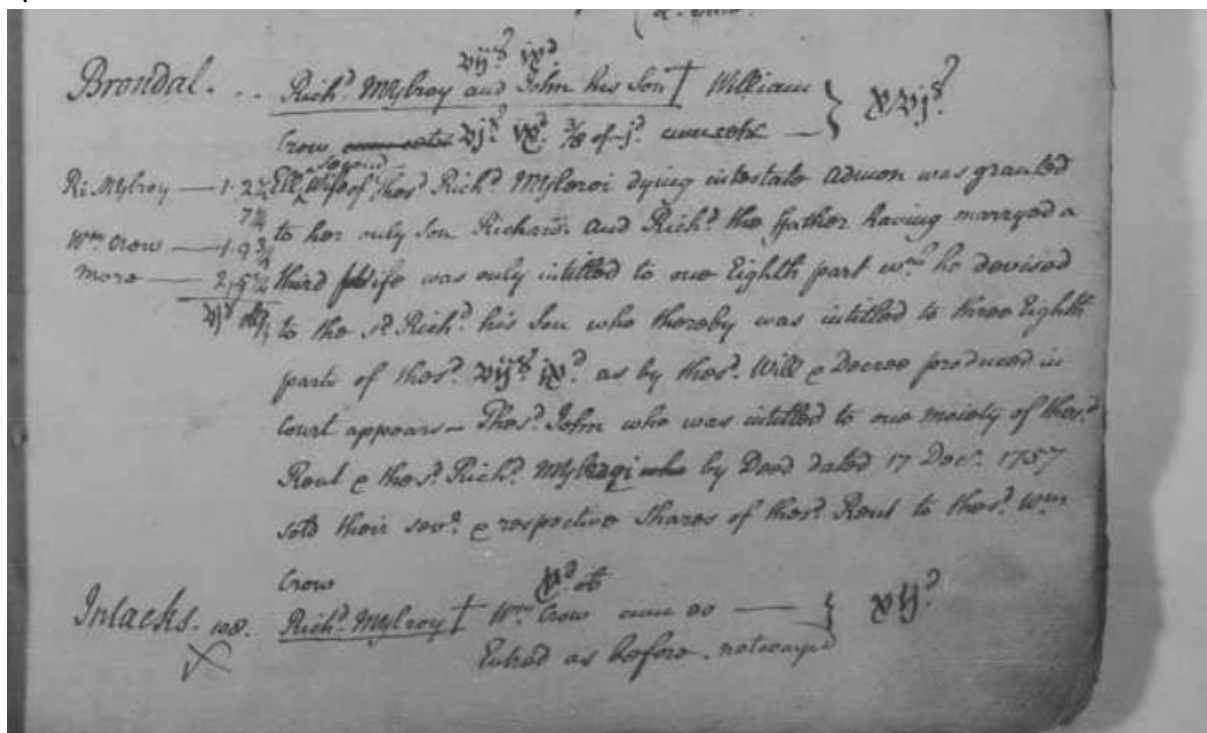 vijs ixd
Brondal. .. Richd. Mylroy and John his Son † William } xvjs.
Crow vjs. ixd. 3/8 of jd.
second
Ri: Mylroy — 1.2 Ell: Wife of thesd. Richd. Mylroi dying intestate admon was granted
7¼
to her only Son Richard. and Richd. the ffather having marryed a
Wm Crow — 1.9¾
more — 2.5¼ third Wife was only intitled to one Eighth part wch. he devised
to the sd. Richd. his Son who thereby was intitled to three Eighth
parts of thesd. vijs. ixd. as by thesd. Will & Decree produced in
Court appears — Thesd. John who was intitled to one moiety of thesd.
Rent & thesd. Richd. by Deed dated 17 Decr. 1757
sold their sevl. & respective Shares of thesd. Rent to thesd. Wm
Crow
xd ob
Inlacks. Richd. Mylroy † Wm. Crow — } xijd.
Entred as before.